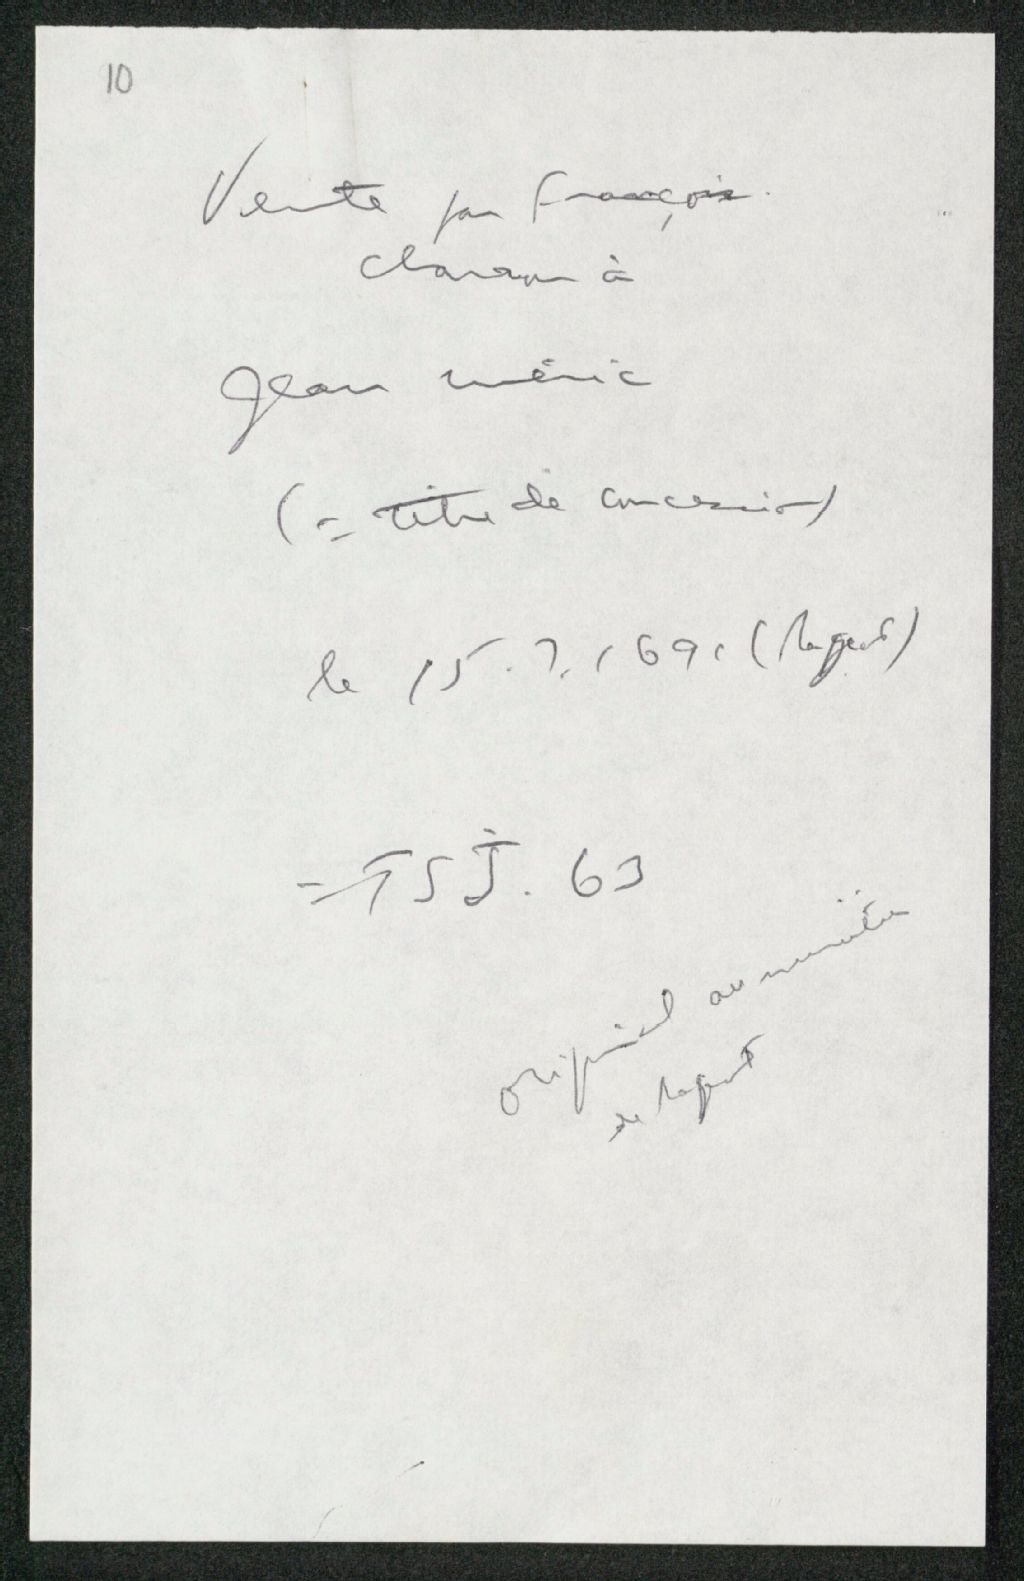 10
Vente par François
à
Jean Méric
(= titre de concession)
le 15.7.169. (Ragent)
= TSJ. 63
original au
de Ragent